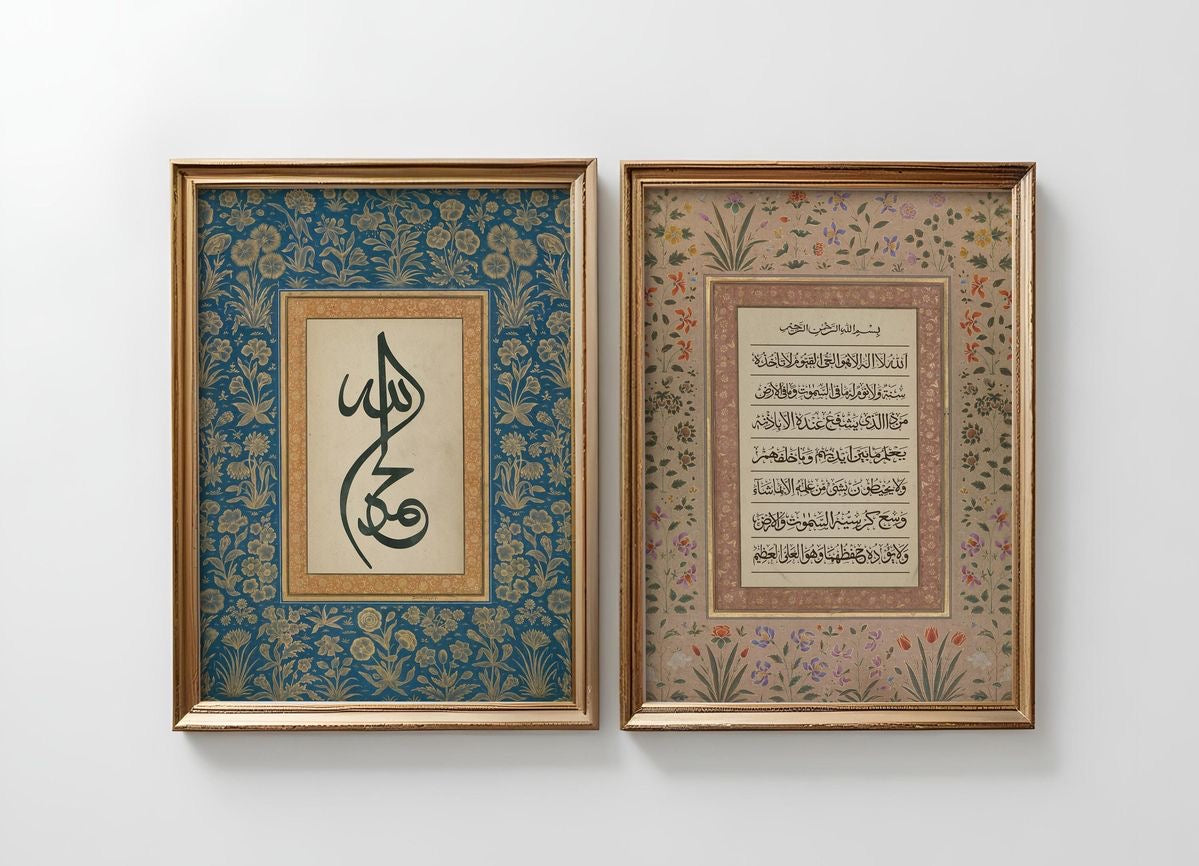 الله
محمد
بِسْمِ اللهِ الرَّحْمٰنِ الرَّحِيمِ
اَللهُ لَا اِلٰهَ اِلَّا هُوَ الْحَيُّ الْقَيُّومُ لَا تَأْخُذُهُ
سِنَةٌ وَلَا نَوْمٌ لَهُ مَا فِي السَّمٰوٰتِ وَمَا فِي الْاَرْضِ
مَنْ ذَا الَّذِي يَشْفَعُ عِنْدَهُ اِلَّا بِاِذْنِهِ
يَعْلَمُ مَا بَيْنَ اَيْدِيهِمْ وَمَا خَلْفَهُمْ
وَلَا يُحِيطُونَ بِشَيْءٍ مِنْ عِلْمِهِ اِلَّا بِمَا شَاءَ
وَسِعَ كُرْسِيُّهُ السَّمٰوٰتِ وَالْاَرْضَ
وَلَا يَؤُدُهُ حِفْظُهُمَا وَهُوَ الْعَلِيُّ الْعَظِيمُ